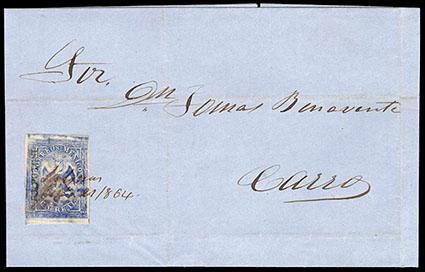 Sor.
Dn Tomas Benavente
Carro
CORREOS MEXICO
/864.